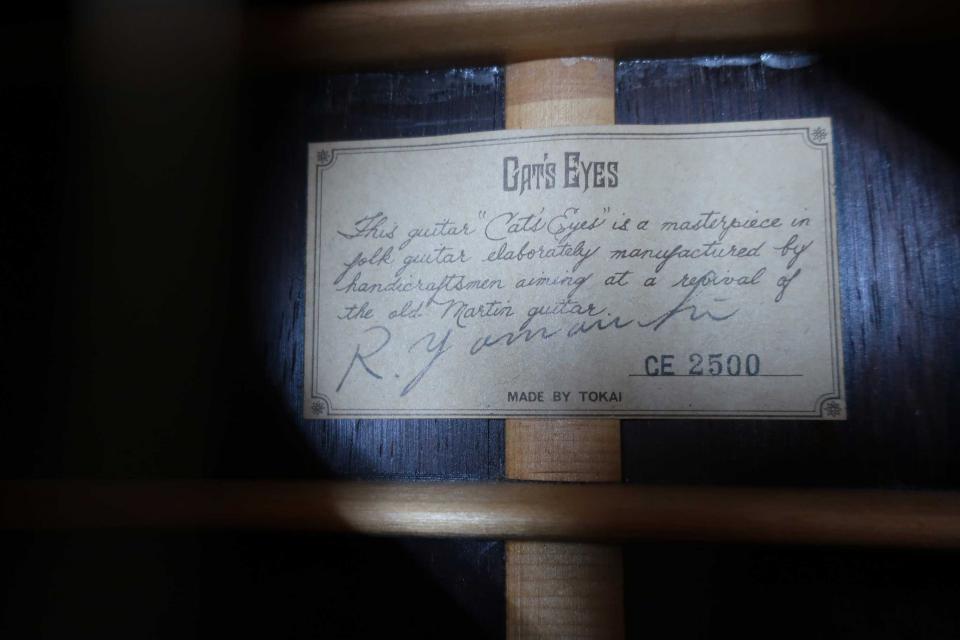 CAT'S EYES
This guitar "Cat's Eyes" is a masterpiece in
folk guitar elaborately manufactured by
handicraftsmen aiming at a revival of
the old Martin guitar.
R. Yamanashi
CE 2500
MADE BY TOKAI